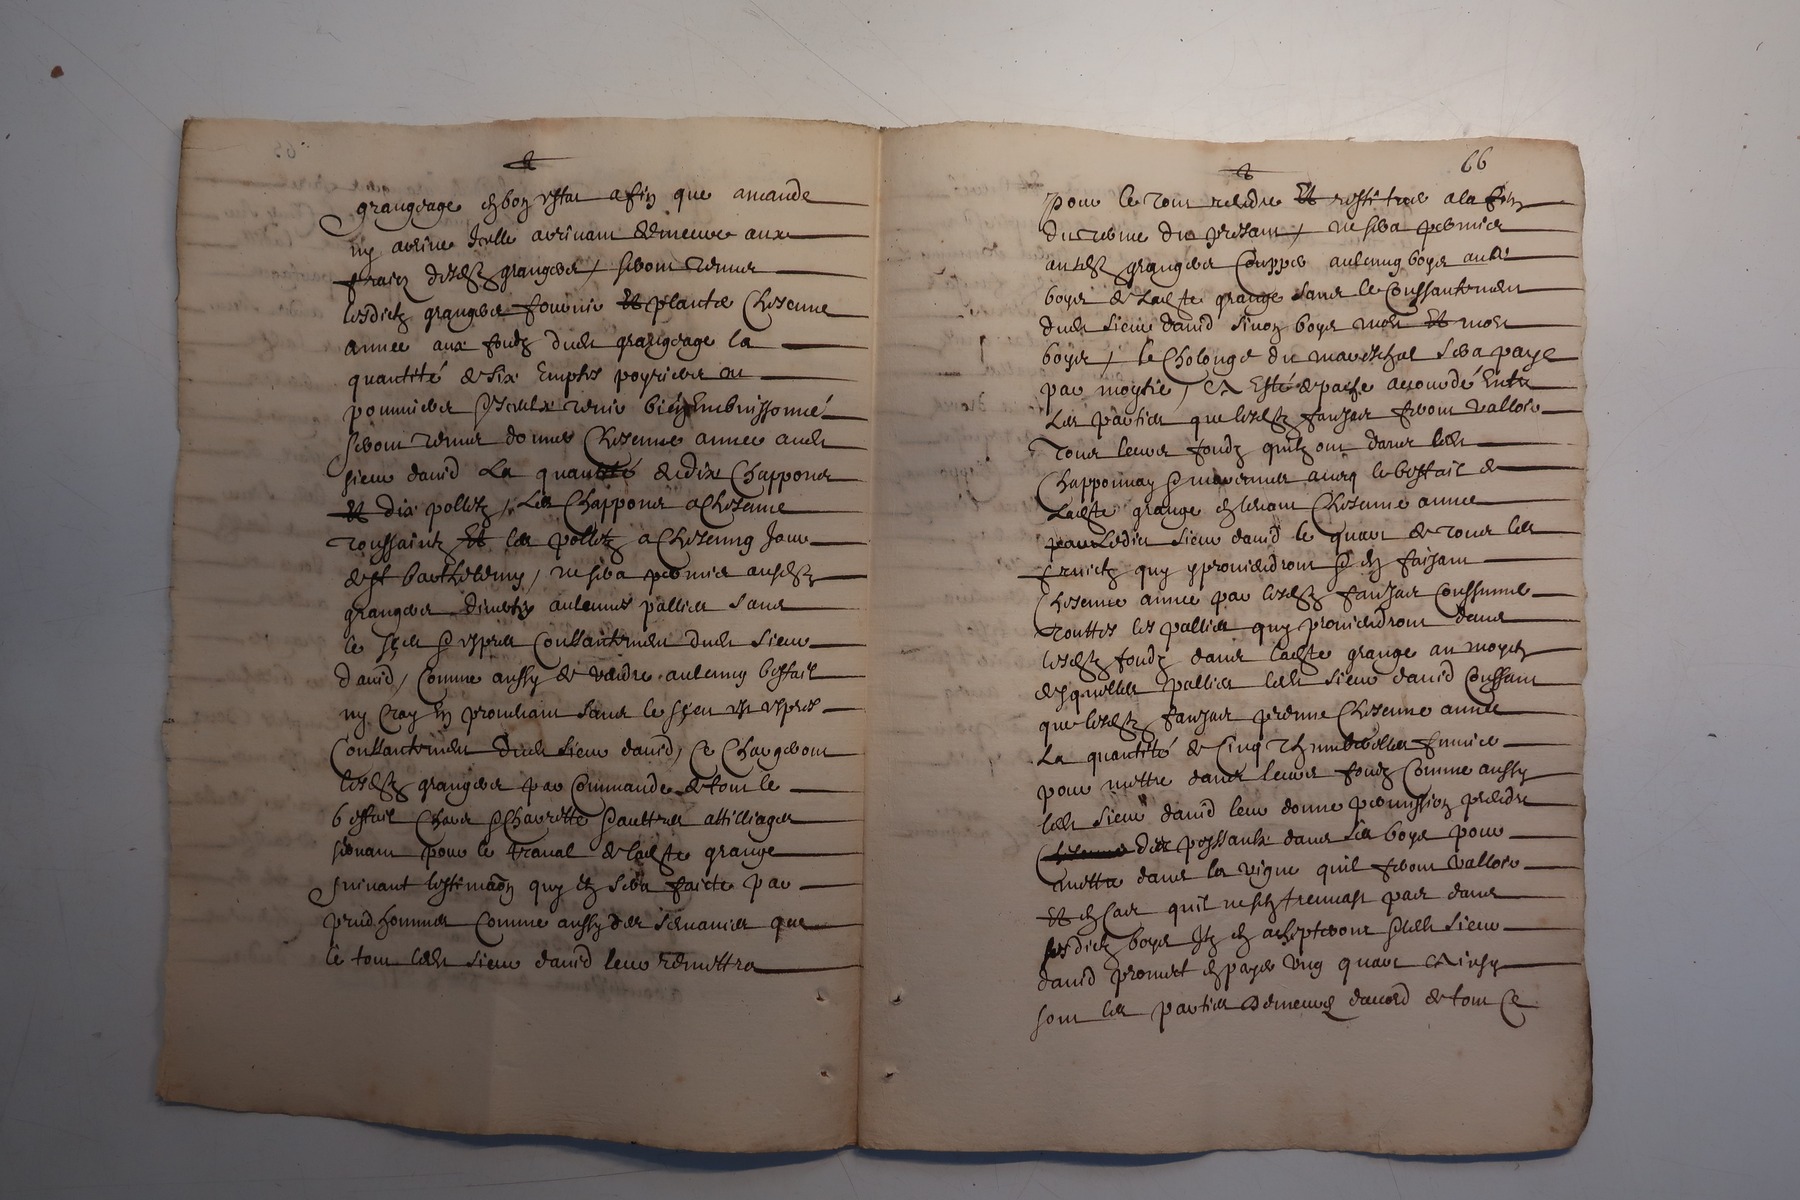 grangeage en bon estat afin que amande
ny arrive Icelle arrivant demeure aux
fraiz desdts grangers, seront tenus
lesdictz grangers fournir Et planter Chesenne
annee aux fondz dudt grangeage la
quantité de six Empies poyriers ou
pommiers Yceulx tenir bien Embuissonné
seront tenus donner Chesenne annee audt
sieur david La quantité de dix Chappons
Et dix polletz, Les Chappons a Chesenne
toussainctz Et les polletz a Chesenng Jour
de st barthelemy, ne sera permis ausdts
grangers divertir aulcunes pallies sans
le sceu & expres Consantement dudt sieur
david, Comme aussy de vendre aulcung bestail
ny Croy En provenant sans le sceu et expres
Consantement dudt sieur david, Ce Chargeront
lesdts grangers par Commande de tout le
bestail Chars & Charrette & aultres attillages
servant pour le traval de ladte grange
suivant lestimaon quy en sera faicte par
prudhommes Comme aussy des semances que
le tout ledt sieur david leur remettra
66
pour le tout rendre Et restituer a la fin
du terme du presant, ne sera permis
ausdts grangers Coupper aulcung boys aux
boys de Ladte grange sans le Consantement
dudt sieur david sinon boys mort Et mort
boys, le Cholonge du mareschal sera paye
par moytie, A Esté de pache accordé Entre
Les parties que lesdts feront valloir
tous leurs fondz quilz ont dans ledt
Chapponnay & avecq le bestail de
Ladte grange Chesenne annee
par Ledict sieur david le quart de tous les
fruictz quy y proviendront & en faisant
Chesenne annee par lesdts Consumer
touttes les pallies quy proviendront dans
lesdts fondz dans ladte grange au moyen
desquelles pallies ledt sieur david Consent
que lesdts prenne Chesenne annee
La quantité de Cinq fumier
pour mettre dans leurs fondz Comme aussy
ledt sieur david leur donne permission prendre
des passaulx dans ses boys pour
mettre dans les vigne quil feront valloir
Et en Cas quil ne sen treuvast pas dans
lesdictz boys Ilz en achepteront & ledt sieur
david promet en payer ung quart Ainsy
sont les parties demeures daccord de tout Ce